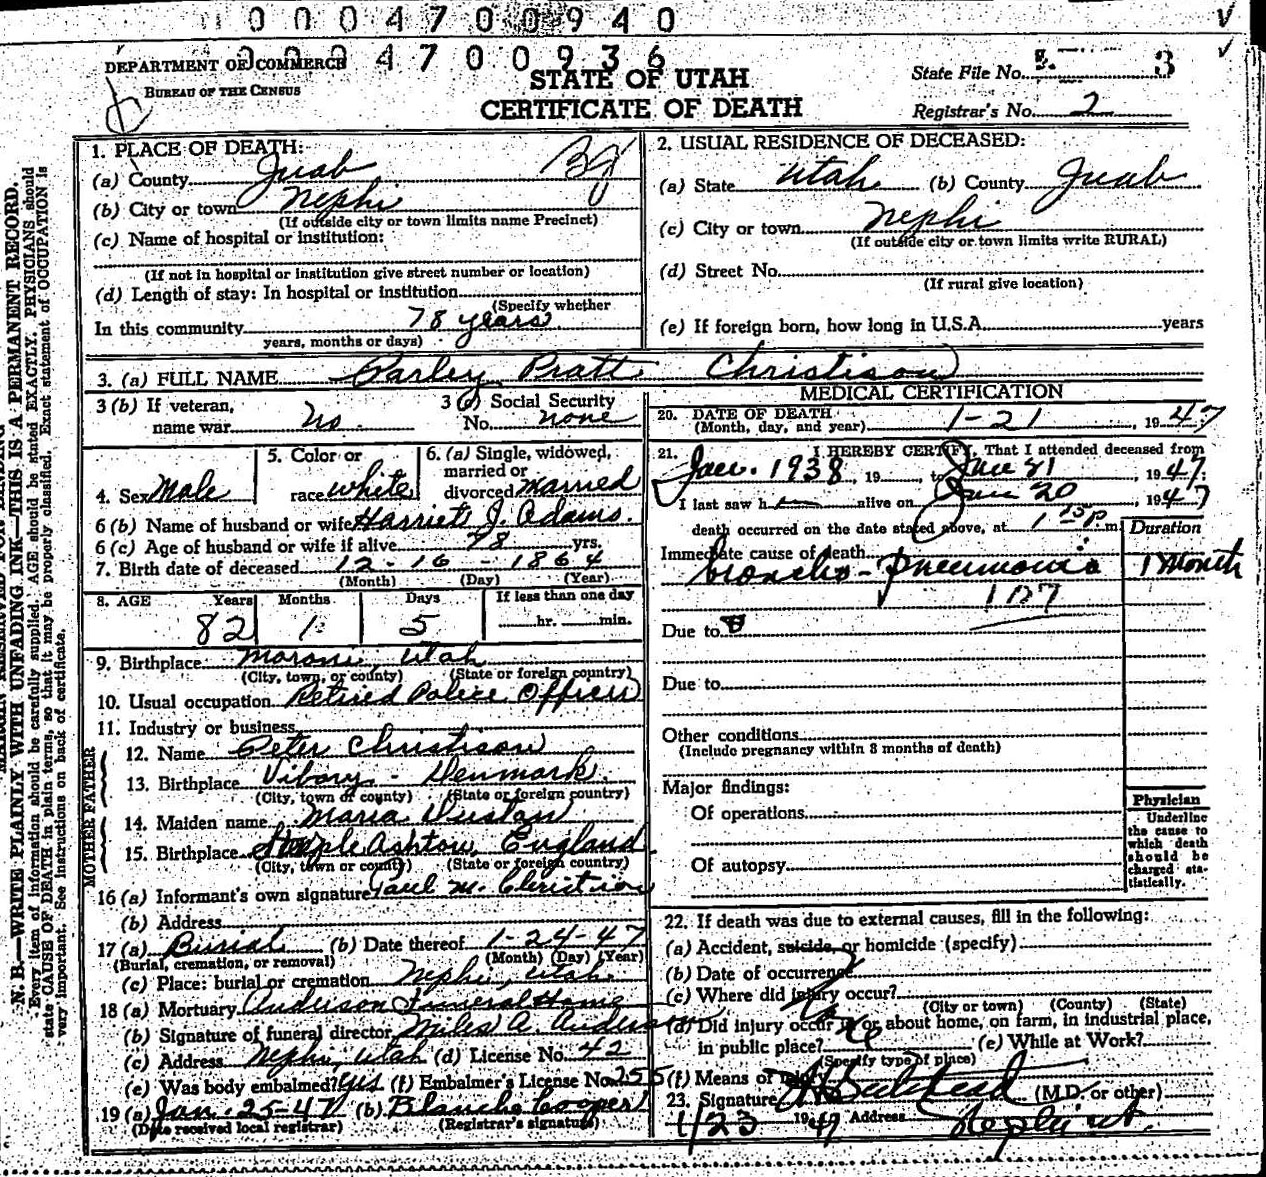 0004700940
0004700936
DEPARTMENT OF COMMERCE
BUREAU OF THE CENSUS
STATE OF UTAH
CERTIFICATE OF DEATH
State File No. 3
Registrar's No. 2
N. B.—WRITE PLAINLY WITH UNFADING INK—THIS IS A PERMANENT RECORD.
Every item of information should be carefully supplied. AGE should be stated EXACTLY. PHYSICIANS should
state CAUSE OF DEATH in plain terms, so that it may be properly classified. Exact statement of OCCUPATION is
very important. See instructions on back of certificate.
1. PLACE OF DEATH:
(a) County Juab
(b) City or town Nephi
(If outside city or town limits name Precinct)
(c) Name of hospital or institution:
(If not in hospital or institution give street number or location)
(d) Length of stay: In hospital or institution
(Specify whether
In this community 78 years
years, months or days)
2. USUAL RESIDENCE OF DECEASED:
(a) State Utah (b) County Juab
(c) City or town Nephi
(If outside city or town limits write RURAL)
(d) Street No.
(If rural give location)
(e) If foreign born, how long in U.S.A. years
3. (a) FULL NAME Parley Pratt Christison
3 (b) If veteran, name war No
3 (c) Social Security No. none
4. Sex Male
5. Color or race white
6. (a) Single, widowed, married or divorced married
6 (b) Name of husband or wife Harriet J. Adams
6 (c) Age of husband or wife if alive 78 yrs.
7. Birth date of deceased 12 - 16 - 1864
(Month) (Day) (Year)
8. AGE Years Months Days If less than one day
82 1 5 hr. min.
9. Birthplace Moroni, Utah
(City, town, or county) (State or foreign country)
10. Usual occupation Retired Police Officer
11. Industry or business
FATHER
12. Name Peter Christison
13. Birthplace Viborg - Denmark
(City, town or county) (State or foreign country)
MOTHER
14. Maiden name Maria Dustan
15. Birthplace Steeple Ashton, England
(City, town or county) (State or foreign country)
16 (a) Informant's own signature Paul M. Christison
(b) Address
17 (a) Burial (b) Date thereof 1-24-47
(Burial, cremation, or removal) (Month) (Day) (Year)
(c) Place: burial or cremation Nephi, Utah
18 (a) Mortuary Anderson Funeral Home
(b) Signature of funeral director Miles A. Anderson
(c) Address Nephi, Utah (d) License No. 42
(e) Was body embalmed? Yes (f) Embalmer's License No. 255
19 (a) Jan. 25-47 (b) Blanche Cooper
(Date received local registrar) (Registrar's signature)
MEDICAL CERTIFICATION
20. DATE OF DEATH 1-21, 1947
(Month, day, and year)
21. I HEREBY CERTIFY, That I attended deceased from
Jan. 1938, 19 , to Jan 21 1947.
I last saw h alive on Jan 20 1947
death occurred on the date stated above, at 1 15 P. m
Duration
Immediate cause of death
broncho-pneumonia 1 month
107
Due to
Due to
Other conditions
(Include pregnancy within 3 months of death)
Major findings:
Of operations
Of autopsy
Physician
Underline
the cause to
which death
should be
charged sta-
tistically.
22. If death was due to external causes, fill in the following:
(a) Accident, suicide, or homicide (specify)
(b) Date of occurrence
(c) Where did injury occur?
(City or town) (County) (State)
(d) Did injury occur in or about home, on farm, in industrial place,
in public place? (e) While at Work?
(Specify type of place)
(f) Means of injury
23. Signature (M.D. or other)
1/23 1947 Address Nephi Ut.